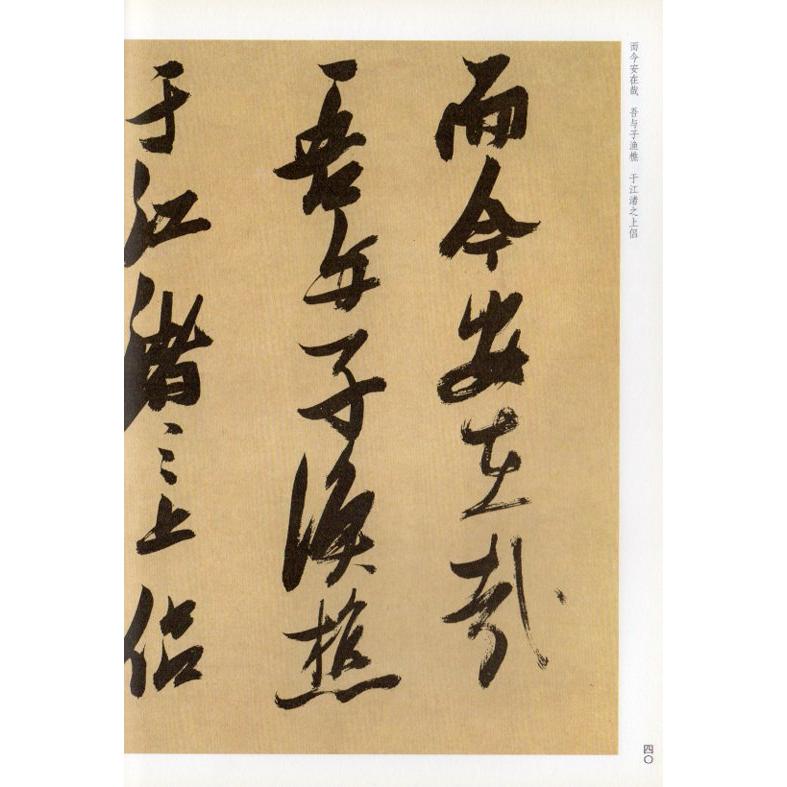 而今安在哉 吾与子渔樵 于江渚之上侣
而今安在哉
吾与子渔樵
于江渚之上侣
四〇